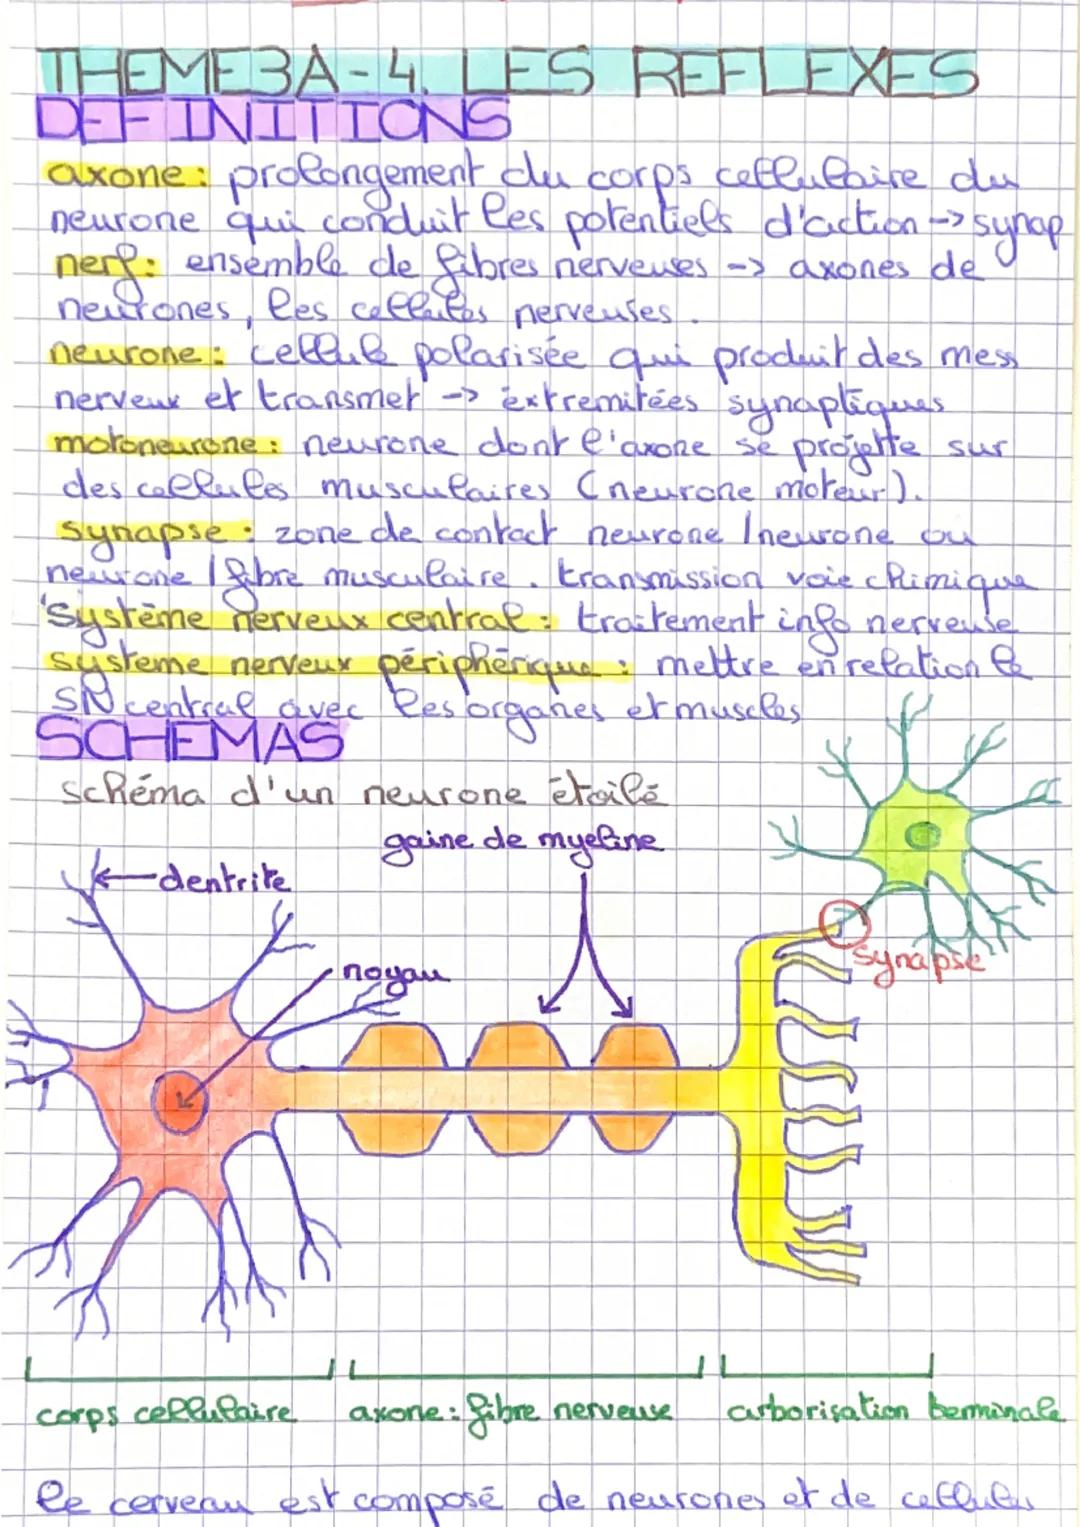 THEME3A-4. LES REFLEXES
DEFINITIONS
axone: prolongement du corps cellulaire du
neurone qui conduit les potentiels d'action -> synap
nerf: ensemble de fibres nerveuses -> axones de
neurones, les cellules nerveuses.
neurone: cellule polarisée qui produit des mess
nerveux et transmet -> extremitées synaptiques
motoneurone: neurone dont l'axone se projette sur
des cellules musculaires (neurone moteur).
synapse: zone de contact neurone /neurone ou
neurone / fibre musculaire. transmission voie chimique
système nerveux central: traitement info nerveuse
systeme nerveux périphérique: mettre en relation le
SN central avec les organes et muscles
SCHEMAS
schéma d'un neurone étoilé
gaine de myeline
dentrite
noyau
synapse
corps cellulaire axone: fibre nerveuse arborisation terminale
le cerveau est composé de neurones et de cellules